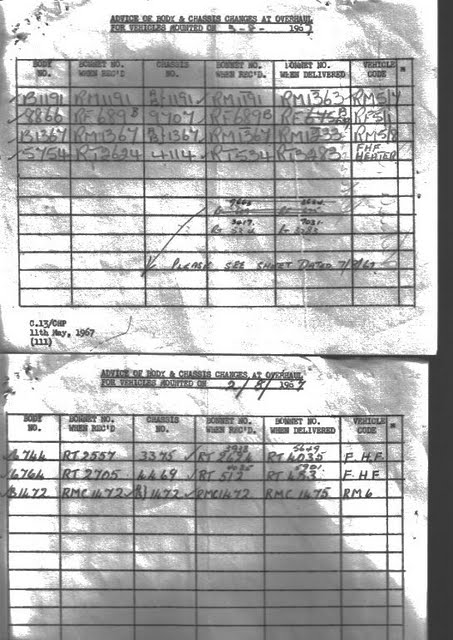 ADVICE OF BODY & CHASSIS CHANGES AT OVERHAUL
FOR VEHICLES MOUNTED ON 3-8- 1967
BODY NO. BONNET NO. WHEN REC'D CHASSIS NO. BONNET NO. WHEN REC'D. BONNET NO. WHEN DELIVERED VEHICLE CODE
B1191 RM1191 1191 RM1191 RM1363 RM5/4
8866 RF689 9707 RF689 RF5/1
B1367 RM1367 1367 RM1367 RM1233 RM5/8
5754 RT2624 4114 RT534 RT3283 FHF HEATER
PLEASE SEE SHEET DATED 7/8/67
C.13/CHP
11th May, 1967
(111)
ADVICE OF BODY & CHASSIS CHANGES AT OVERHAUL
FOR VEHICLES MOUNTED ON 2/8/ 1967
BODY NO. BONNET NO. WHEN REC'D CHASSIS NO. BONNET NO. WHEN REC'D. BONNET NO. WHEN DELIVERED VEHICLE CODE
RT 2557 3375 RT 4035 F.H.F
6764 RT 2705 4469 RT 512 RT 453 F.H.F
B1472 RMC1472 1472 RMC1472 RMC 1475 RM6